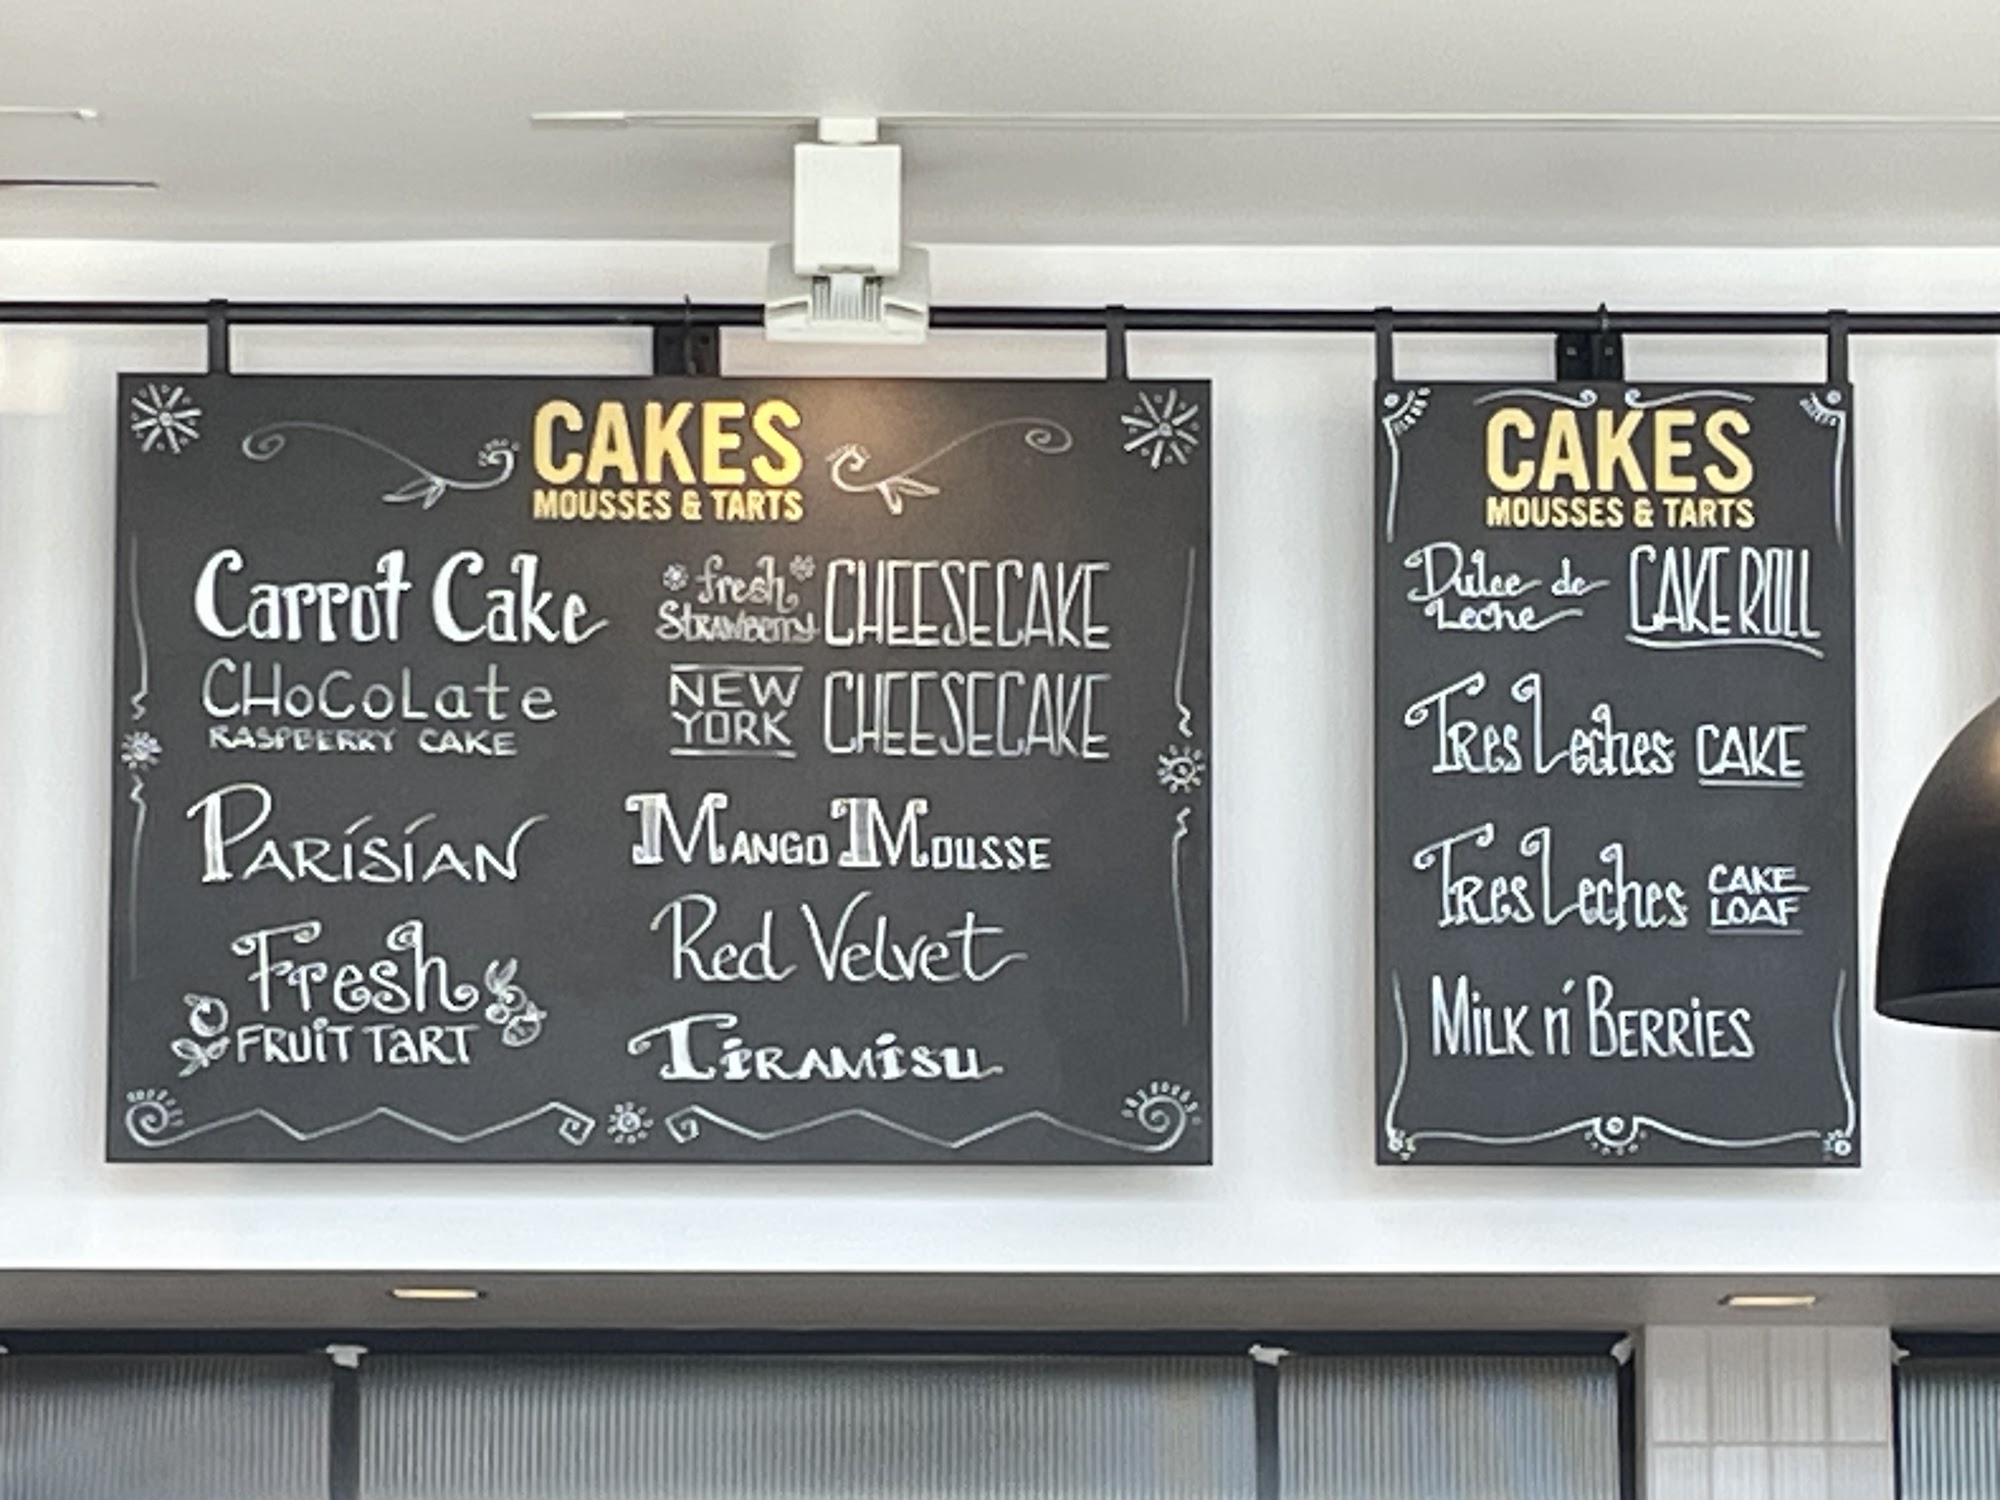 CAKES
MOUSSES & TARTS
Carrot Cake
CHoCoLate
RASPBERRY CAKE
PARiSiAN
Fresh
FRUiT TaRT
fresh
STRAWBERRY CHEESECAKE
NEW
YORK CHEESECAKE
MANGO MOUSSE
Red Velvet
TiRAMiSU
CAKES
MOUSSES & TARTS
Dulce de
Leche CAKE ROLL
TRes Leches CAKE
TRes Leches CAKE
LOAF
MiLK n' BERRiES